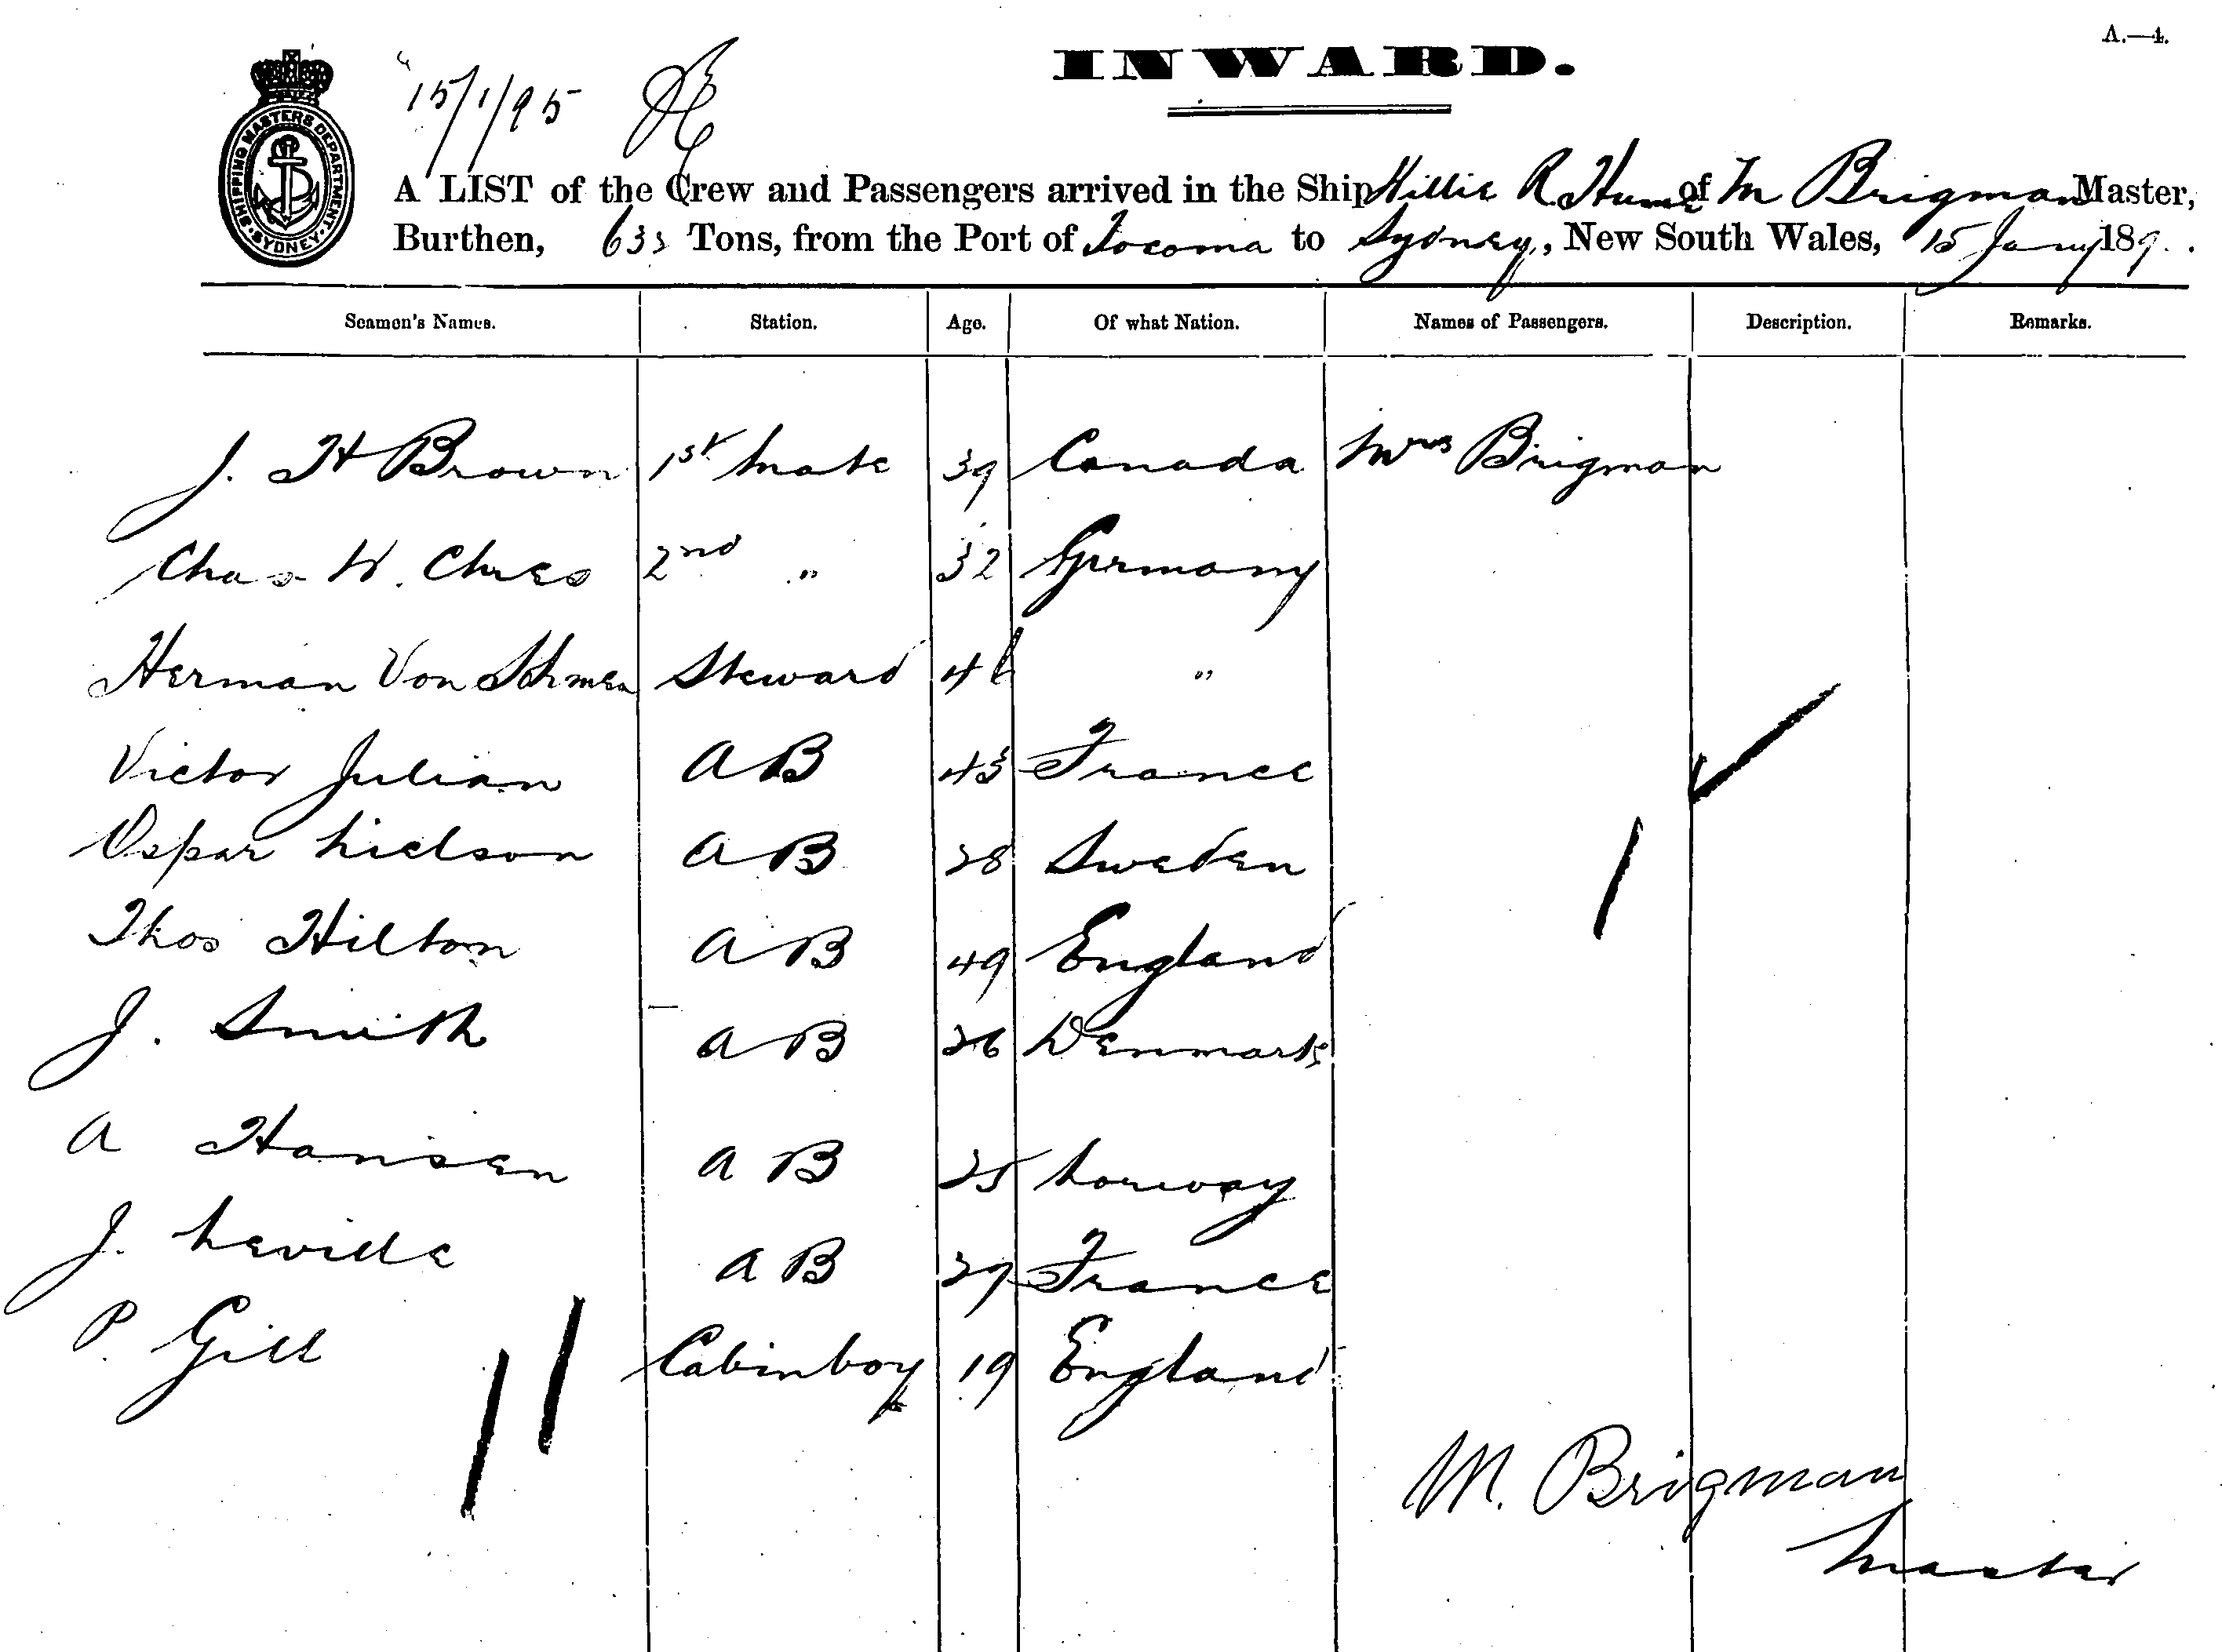 A.—4.
INWARD.
15/1/95
SHIPPING MASTERS DEPARTMENT · SYDNEY ·
A LIST of the Crew and Passengers arrived in the Ship Willie R. Hume of M Brigman Master,
Burthen, 633 Tons, from the Port of Tocoma to Sydney, New South Wales, 15 Jany 189
Seamen's Names. Station. Age. Of what Nation. Names of Passengers. Description. Remarks.
J. H Brown 1st Mate 39 Canada Mrs Brigman
Chas W. 2nd " 32 Germany
Herman Von Steward 46 "
Victor Julian AB 43 France
Nielson AB 28 Sweden
Thos Hilton AB 49 England
J. Smith AB 26 Denmark
A Hansen AB 25 Norway
J. Neville AB 29 France
P. Gill Cabinboy 19 England
M. Brigman
Master